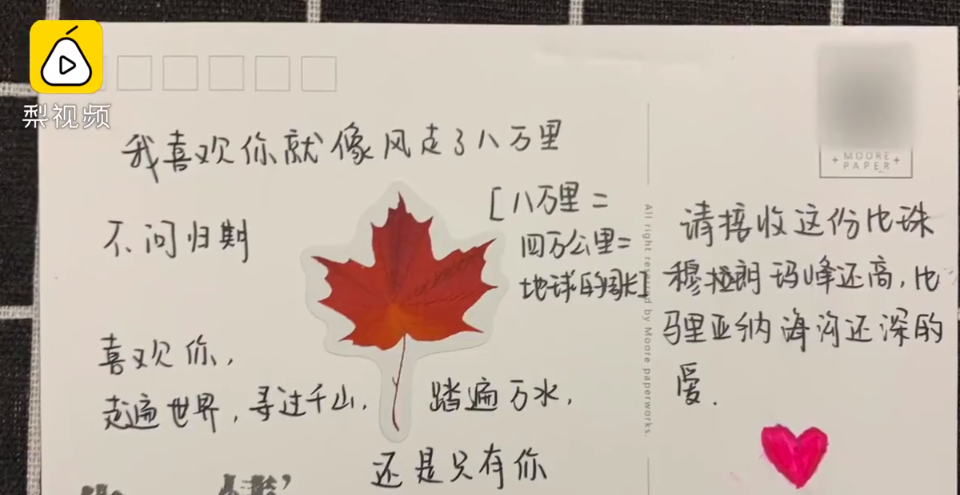 梨视频
我喜欢你就像风走了八万里
不问归期
[八万里=
四万公里=
地球的周长]
喜欢你,
走遍世界,寻过千山,踏遍万水,
还是只有你
All right reserved by Moore paperworks.
+ MOORE +
PAPER
请接收这份比珠
穆拉朗玛峰还高,比
马里亚纳海沟还深的
爱.